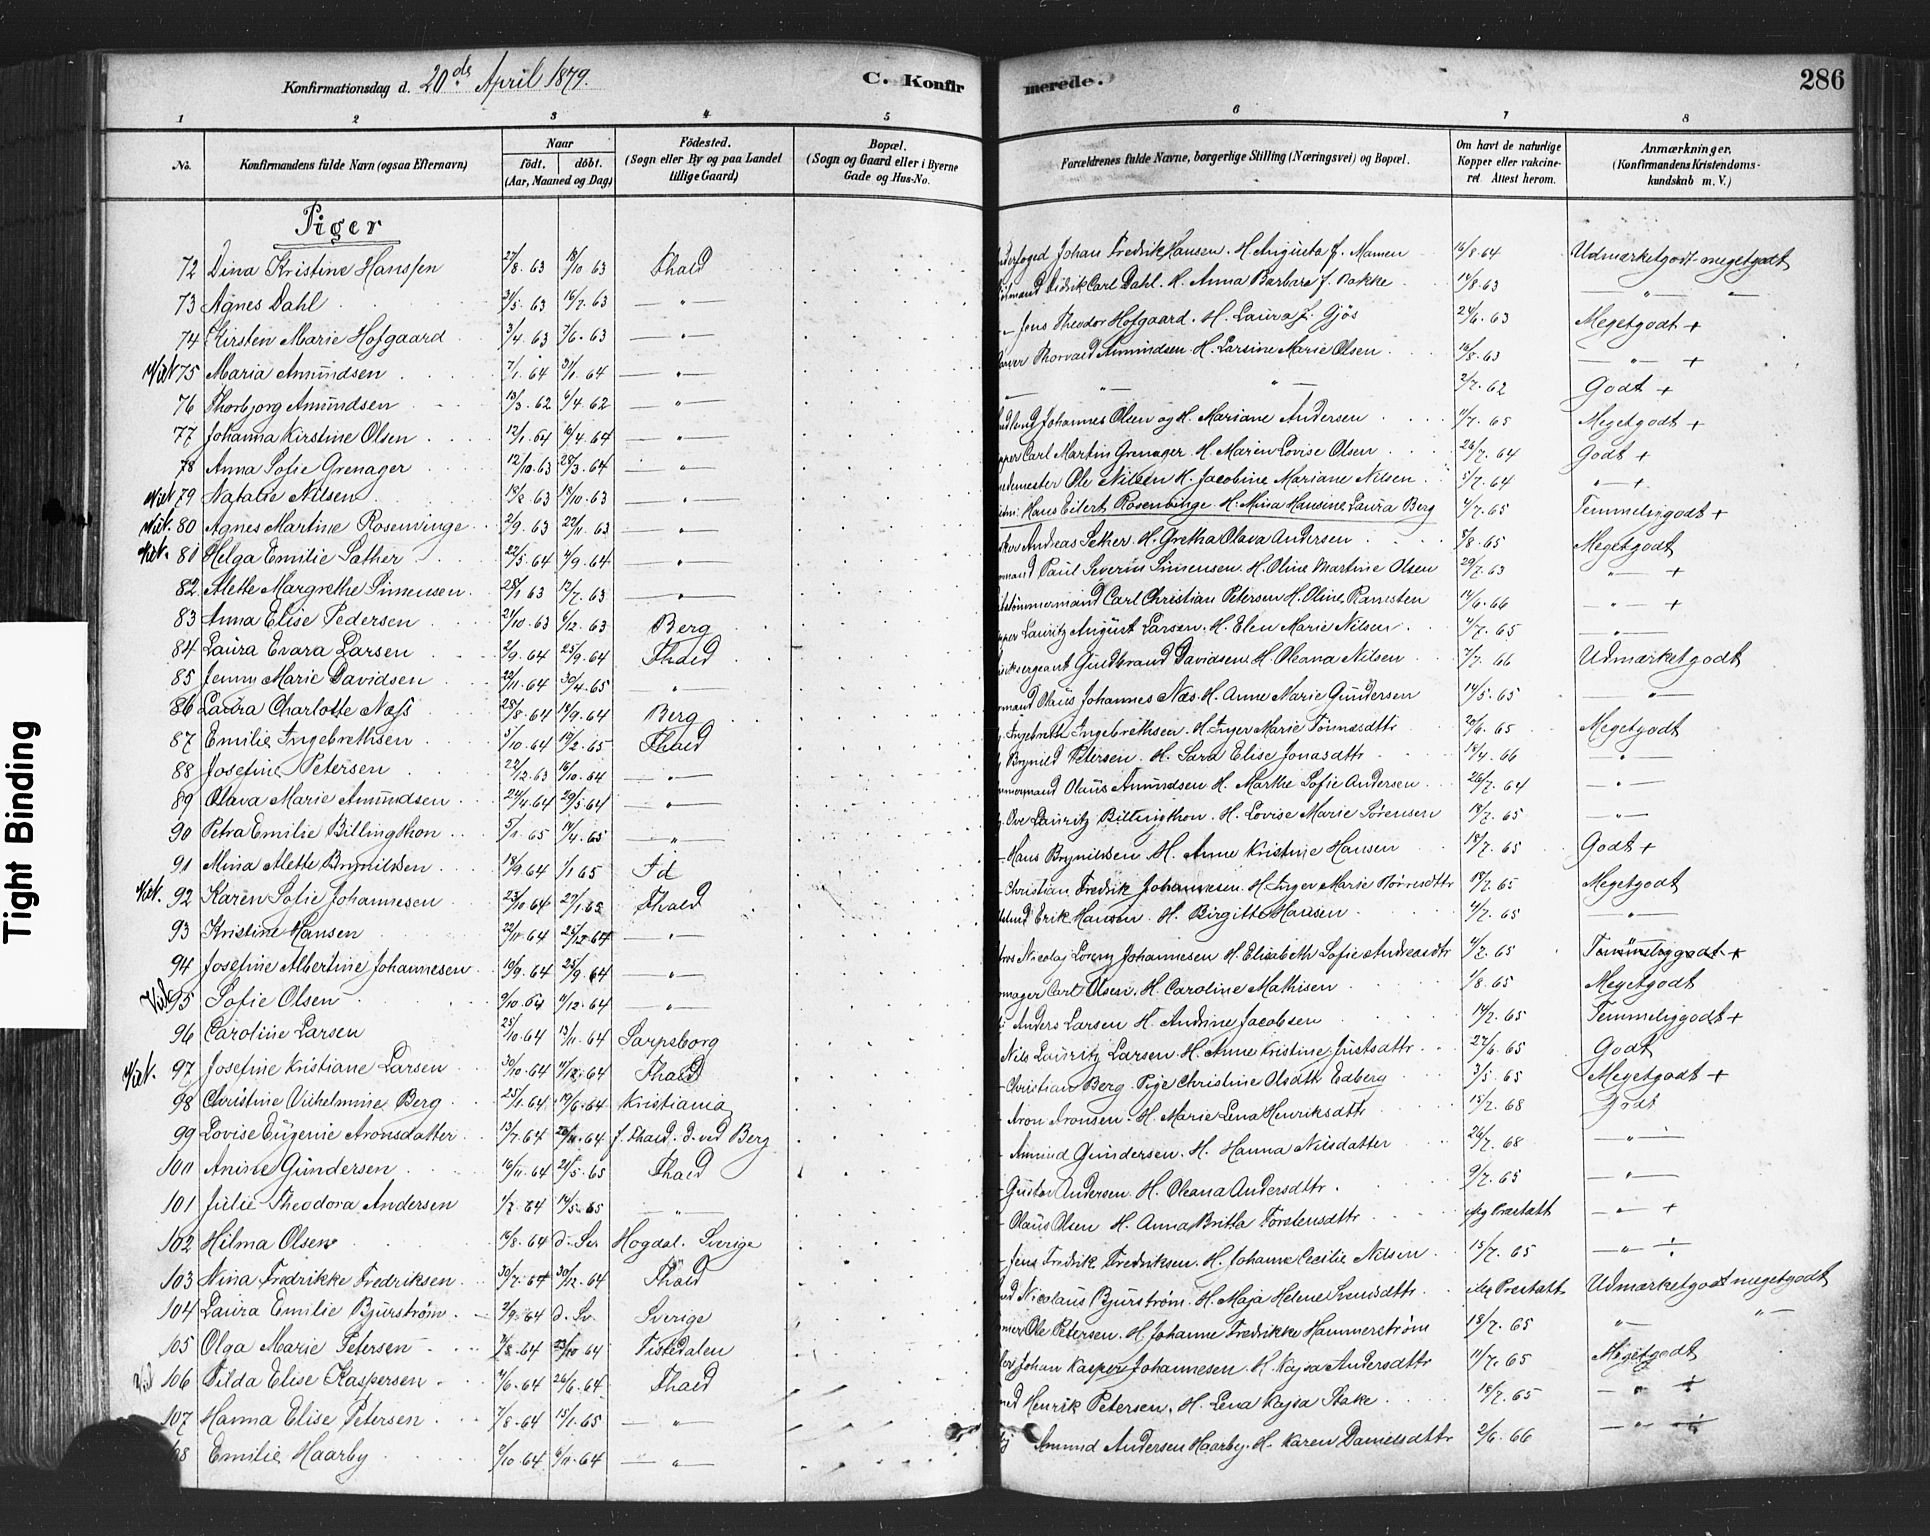 Konfirmationsdag d. 20de April 1879.
C. Konfirmerede.
286
1 2 3 4 5 6 7 8
No.
Konfirmandens fulde Navn (ogsaa Efternavn)
Naar
født. döbt.
(Aar, Maaned og Dag)
Födested.
(Sogn eller By og paa Landet
tillige Gaard)
Bopæl.
(Sogn og Gaard eller i Byerne
Gade og Hus-No.
Forældrenes fulde Navne, borgerlige Stilling (Næringsvei) og Bopæl.
Om havt de naturlige
Kopper eller vakcine-
ret. Attest herom.
Anmærkninger,
(Konfirmandens Kristendoms-
kundskab m. V.)
Piger
72 Dina Kristine Hanssen 27/8 63 18/10 63 Fhald Johan Fredrik Hansen. H. Augusta f. Mamen 16/8 64 Udmærketgodt-megetgodt
73 Agnes Dahl 31/5 63 16/7 63 — " — Didrik Carl Dahl. H. Anna Barbara f. Bakke 14/8 63 — " —
74 Kirsten Marie Hofgaard 3/4 63 7/6 63 — " — Jens Theodor Hofgaard. H. Laura f. Gjös 24/6 63 Megetgodt +
75 Maria Amundsen 7/1 64 31/1 64 — " — Thorvald Amundsen H. Larsine Marie Olsen 16/8 63 — " — +
76 Thorbjorg Amundsen 13/3 62 6/4 62 — " — — " — " — 2/7 62 Godt +
77 Johanna Kirstine Olsen 12/1 64 10/4 64 — " — Johannes Olsen og H. Mariane Andersen 11/7 65 Megetgodt +
78 Anna Sofie Grenager 12/10 63 28/3 64 — " — Carl Martin Grenager H. Maren Lovise Olsen 26/7 64 Godt +
79 Natalie Nilsen 63 18/10 63 — " — Ole Nilsen H. Jacobine Mariane Nilsen 5/7 64 — " — +
80 Agnes Martine Rosenvinge 2/9 63 22/11 63 — " — Hans Eilert Rosenvinge H. Mina Hansine Laura Berg 4/7 65 Temmeligodt +
81 Helga Emilie Sather 22/5 64 4/9 64 — " — Andreas Sether. H. Gretha Olava Andersen 8/8 65 Megetgodt
82 Alette Margrethe Simensen 28/1 63 12/7 63 — " — Paul Severin Simensen. H. Oline Martine Olsen 29/7 63 — " — +
83 Anna Elise Pedersen 21/10 63 6/12 63 Berg Carl Christian Petersen H. Oline Ramsten 14/6 66 — " — +
84 Laura Evara Larsen 2/9 64 25/9 64 Fhald Lauritz August Larsen. H. Elen Marie Nilsen 4/7 65 — " —
85 Jenny Marie Davidsen 22/11 64 30/4 65 — " — Gudbrand Davidsen H. Oleana Nilsen 7/7 66 Udmærketgodt
86 Laura Charlotte Næss 28/8 64 18/9 64 Berg Olaus Johannes Næs. H. Anne Marie Gundersen 14/5 65 — " —
87 Emilie Ingebrethsen 5/10 64 19/2 65 Fhald Ingebreth Ingebrethsen. H. Inger Marie 20/6 65 Megetgodt
88 Josefine Petersen 22/12 63 16/10 64 — " — Brynild Petersen. H. Sara Elise Jonasdttr 18/4 66 — " —
89 Olava Marie Amundsen 24/4 64 29/5 64 — " — Olaus Amundsen H. Marthe Sofie Andersen 26/7 64 — " —
90 Petra Emilie Billingthon 5/1 65 14/4 65 — " — Ove Lauritz Billingthon. H. Lovise Marie Sørensen 18/7 65 — " —
91 Mina Alette Brynildsen 18/9 64 1/1 65 Id Hans Brynildsen H. Anne Kristine Hansen 18/7 65 Godt +
92 Karen Sofie Johannesen 23/10 64 22/1 65 Fhald Christian Fredrik Johannesen. H. Inger Marie 18/7 65 Megetgodt
93 Kristine Hansen 22/11 64 26/12 64 — " — Erik Hansen H. Birgitte Hansen 4/7 65 — " —
94 Josefine Albertine Johannesen 10/9 64 25/9 64 — " — Nicolay Lorenz Johannesen H. Elisabeth Sofie Andreasdtr 4/7 65 Temmeliggodt +
95 Sofie Olsen 9/10 64 4/12 64 — " — Carl Olsen. H. Caroline Mathisen 1/8 65 Megetgodt
96 Caroline Larsen 25/10 64 13/11 64 Sarpsborg Anders Larsen H. Andrine Jacobsen 14/7 65 Temmeliggodt +
97 Josefine Kristiane Larsen 30/10 64 11/12 64 Fhald Nils Lauritz Larsen. H. Anne Kristine Justsdttr 27/6 65 Godt
98 Christine Vilhelmine Berg 25/1 64 19/6 64 Kristiania Christian Berg. Pige Christine Olsdtt Edberg 3/5 65 Megetgodt +
99 Lovise Eugenie Aronsdatter 13/7 64 64 f. Fhald. d. ved Berg Aron Aronsen. H. Marie Lena Henriksdttr 15/7 68 Godt
100 Anine Gundersen 16/11 64 21/5 65 Fhald Amund Gundersen. H. Hanna Nilsdatter 26/7 68 — " —
101 Julie Theodora Andersen 1/7 64 14/5 65 — " — Gustav Andersen. H. Oleana Andersdttr. 9/7 65 — " —
102 Hilma Olsen 18/8 64 d. Sv Hogdal. Sverige Olaus Olsen H. Anna Britta Torstensdttr iflg Præstatt — " — +
103 Nina Fredrikke Fredriksen 30/7 64 30/12 64 Fhald Jens Fredrik Fredriksen. H. Johanne Cecilie Nilsen 15/7 65 — " — ÷
104 Laura Emilie Bjurström 2/9 64 d. Sv. Sverige Nicolaus Bjurström. H. Maja Helene Svensdttr iflg Prestatt Udmærketgodt megetgodt
105 Olga Marie Petersen 7/8 64 23/10 64 Tistedalen Ole Petersen. H. Johanne Fredrikke Hammerström 18/7 65 — " —
106 Tilda Elise Kaspersen 4/6 64 26/6 64 Fhald Johan Kasper Johannesen H. Kajsa Andersdttr 11/7 65 Megetgodt
107 Hanna Elise Petersen 7/8 64 15/1 65 — " — Henrik Petersen. H. Lena Kajsa Stake 18/7 65 — " — ÷
Emilie Haarby 2/10 64 6/11 64 — " — Amund Andersen Haarby. H. Karen Danielsdttr 2/6 66 — " — ÷
Tight Binding